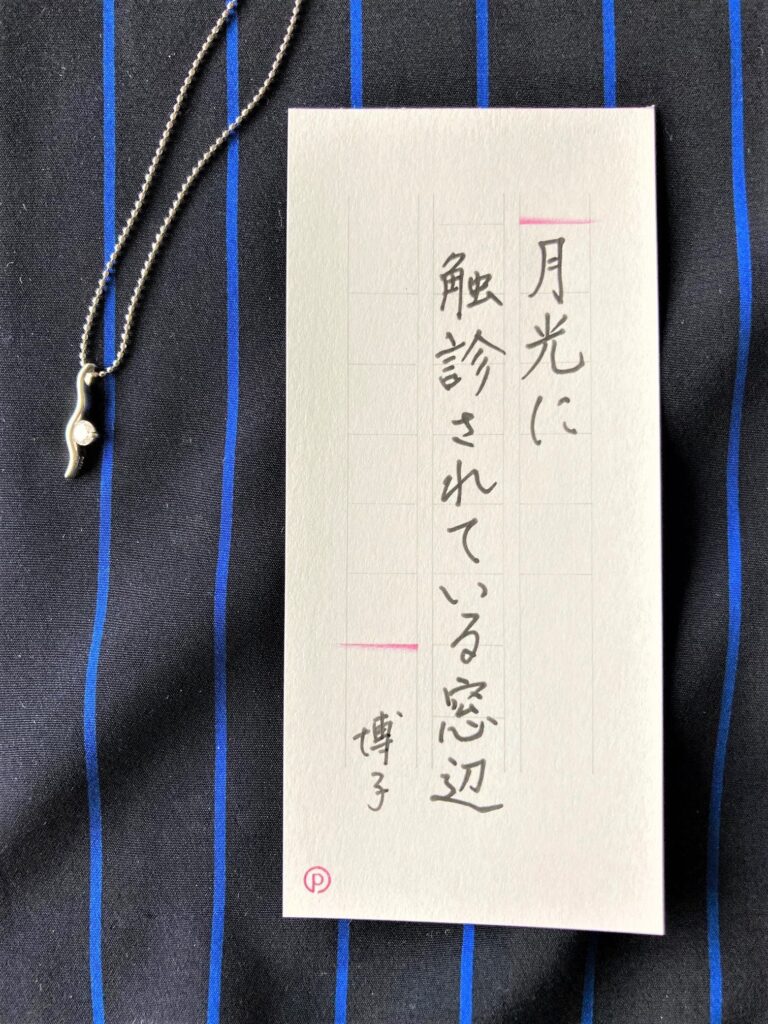 月光に
触診されている窓辺
博子
p